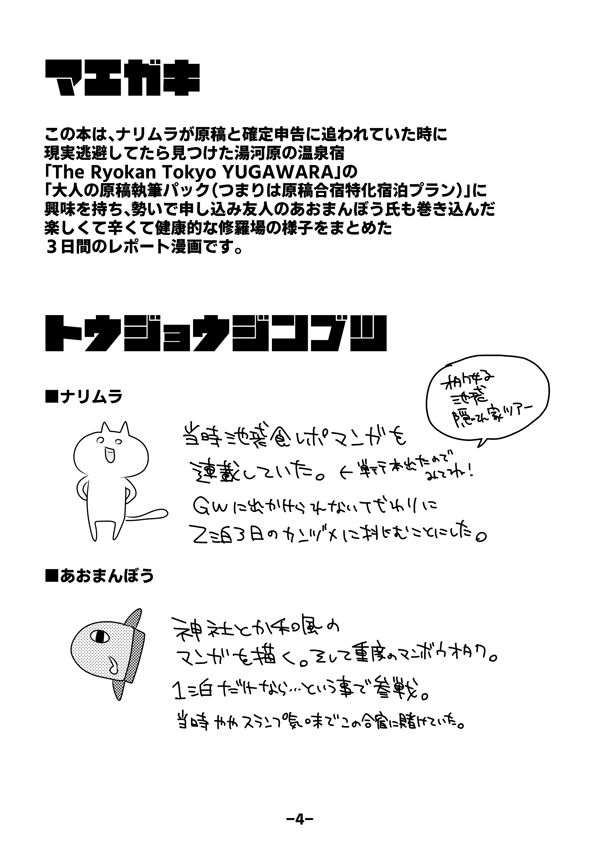 マエガキ
この本は、ナリムラが原稿と確定申告に追われていた時に
現実逃避してたら見つけた湯河原の温泉宿
「The Ryokan Tokyo YUGAWARA」の
「大人の原稿執筆パック(つまりは原稿合宿特化宿泊プラン)」に
興味を持ち、勢いで申し込み友人のあおまんぼう氏も巻き込んだ
楽しくて辛くて健康的な修羅場の様子をまとめた
3日間のレポート漫画です。
トウジョウジンブツ
■ナリムラ
当時池袋食レポマンガを
連載していた。←単行本出たので
みてね!
池袋
隠れ家ツアー
GWに出かけられない代わりに
2泊3日のカンヅメに挑むことにした。
■あおまんぼう
神社とか和風の
マンガを描く。そして重度のマンボウオタク。
1泊だけなら…という事で参戦。
当時ややスランプ気味でこの合宿に賭けていた。
-4-